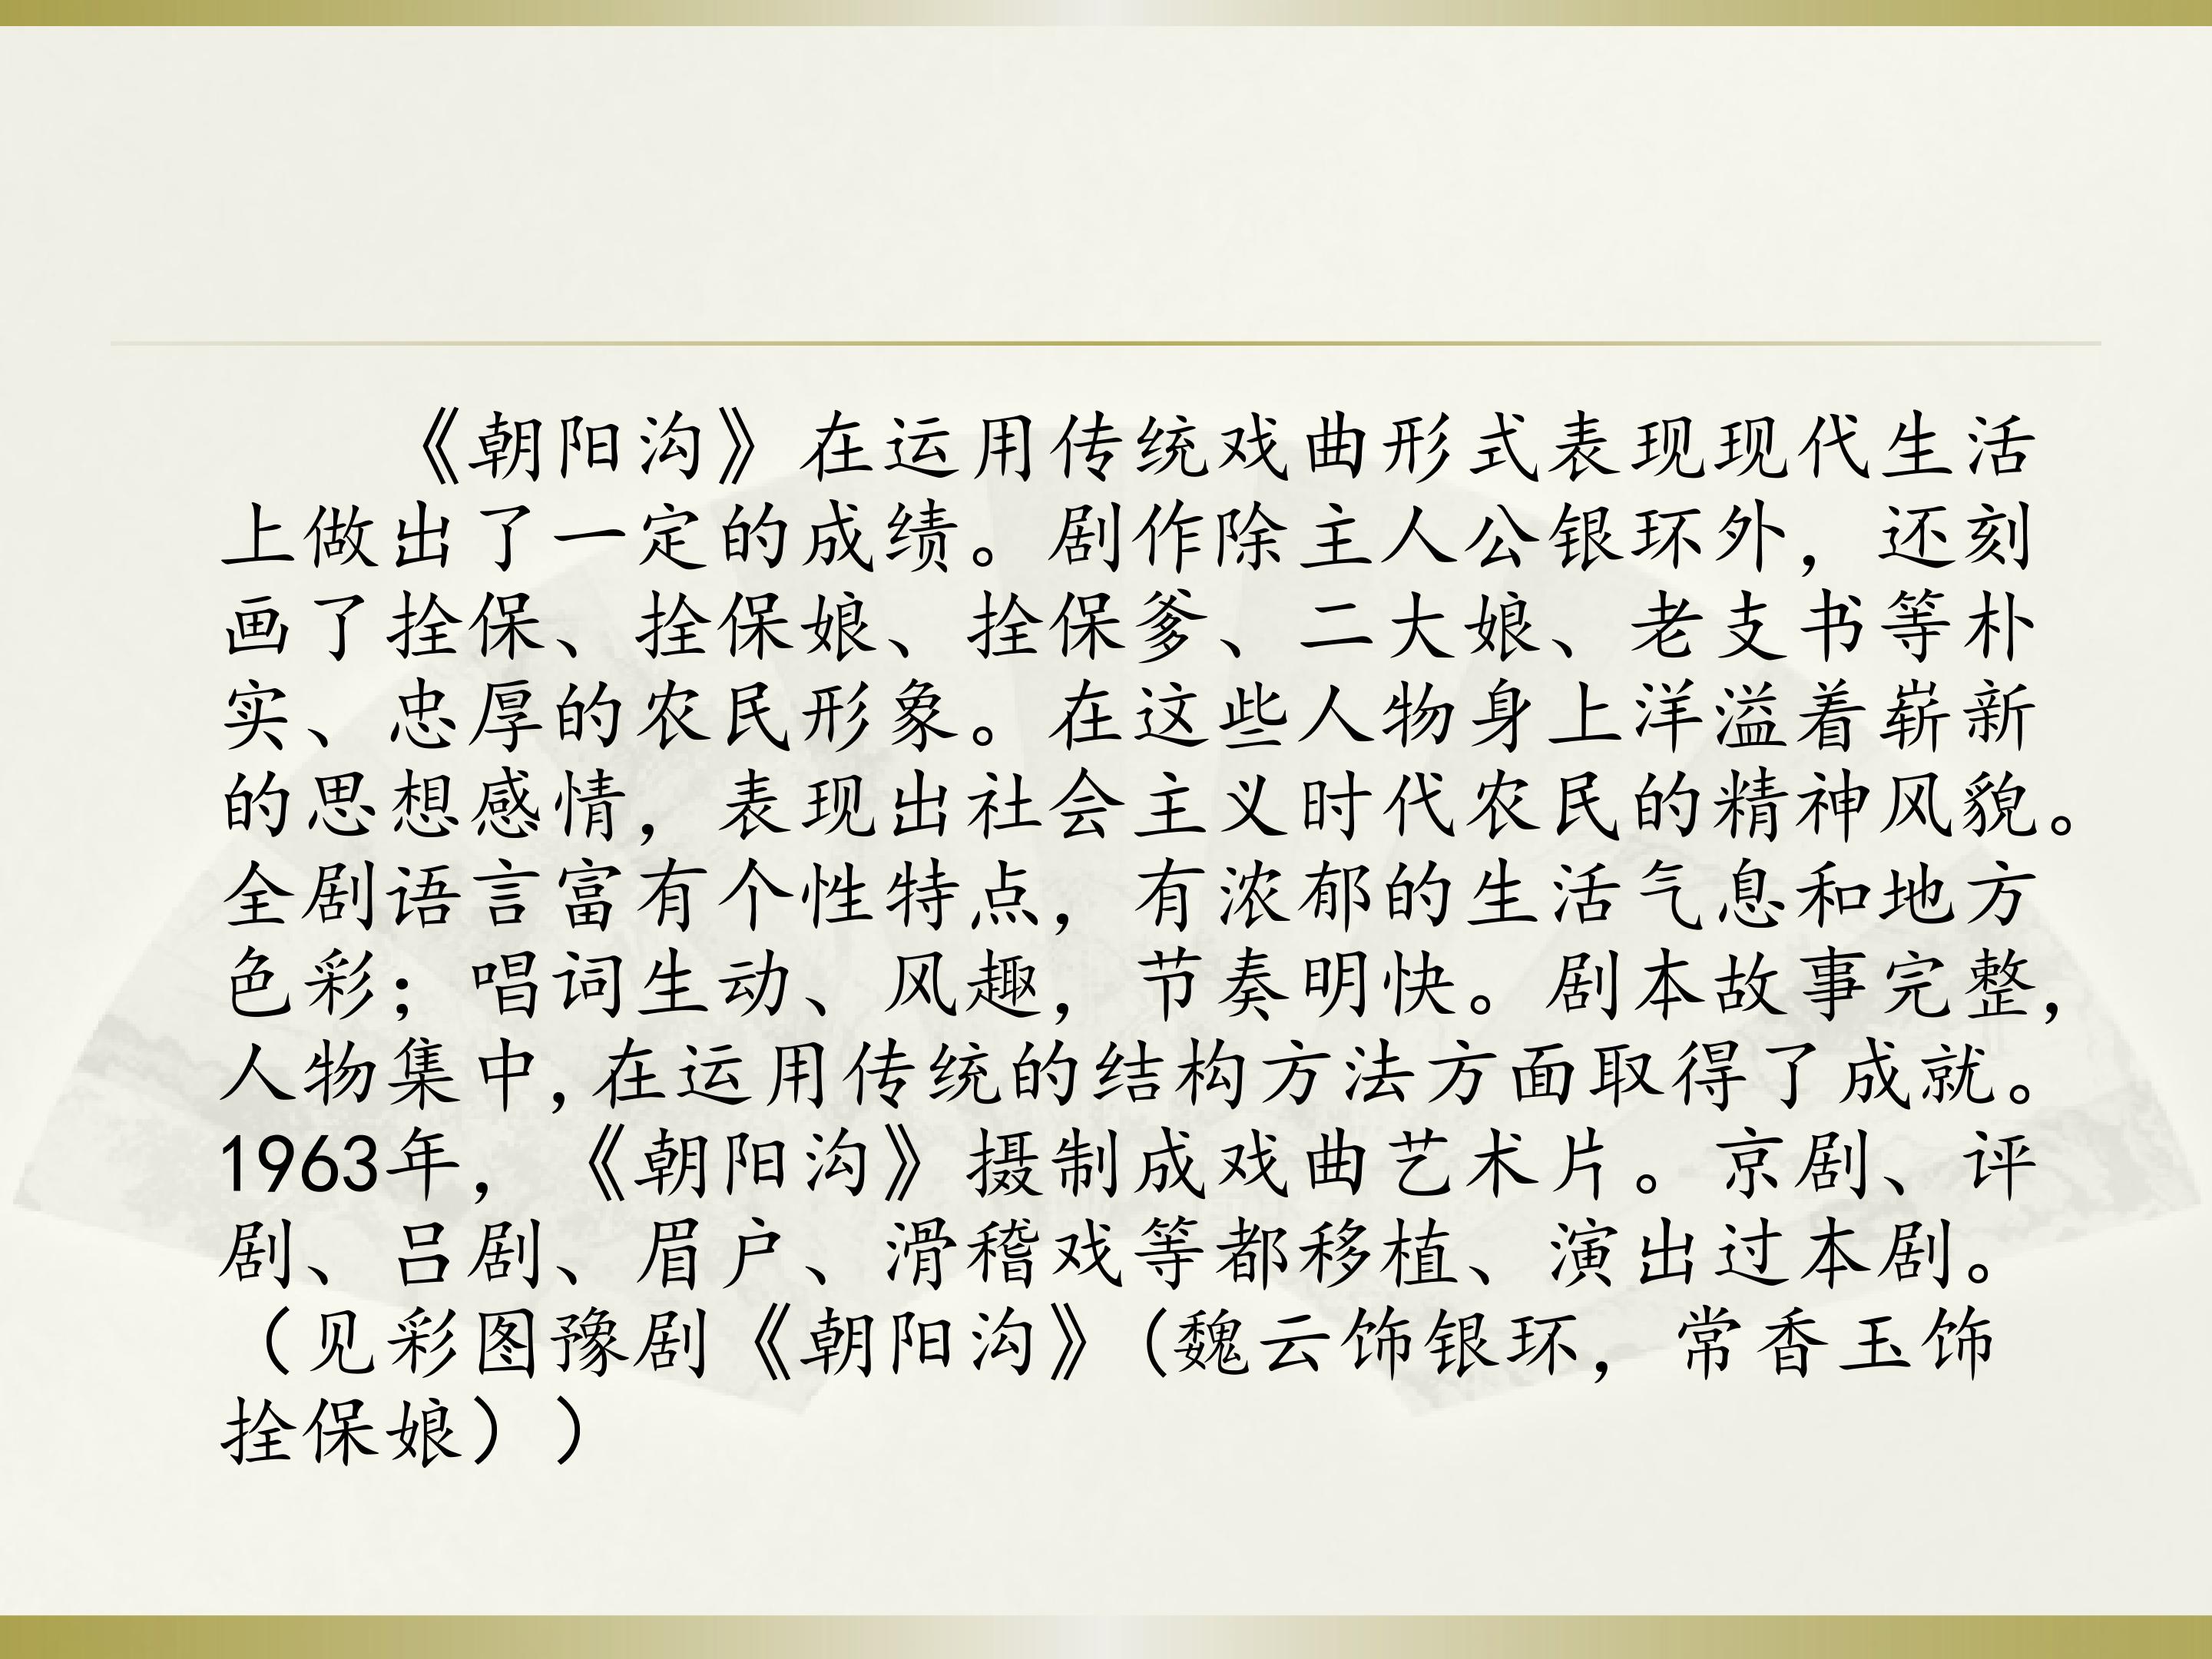 《朝阳沟》在运用传统戏曲形式表现现代生活
上做出了一定的成绩。剧作除主人公银环外，还刻
画了拴保、拴保娘、拴保爹、二大娘、老支书等朴
实、忠厚的农民形象。在这些人物身上洋溢着崭新
的思想感情，表现出社会主义时代农民的精神风貌。
全剧语言富有个性特点，有浓郁的生活气息和地方
色彩；唱词生动、风趣，节奏明快。剧本故事完整，
人物集中,在运用传统的结构方法方面取得了成就。
1963年，《朝阳沟》摄制成戏曲艺术片。京剧、评
剧、吕剧、眉户、滑稽戏等都移植、演出过本剧。
（见彩图豫剧《朝阳沟》(魏云饰银环，常香玉饰
拴保娘））